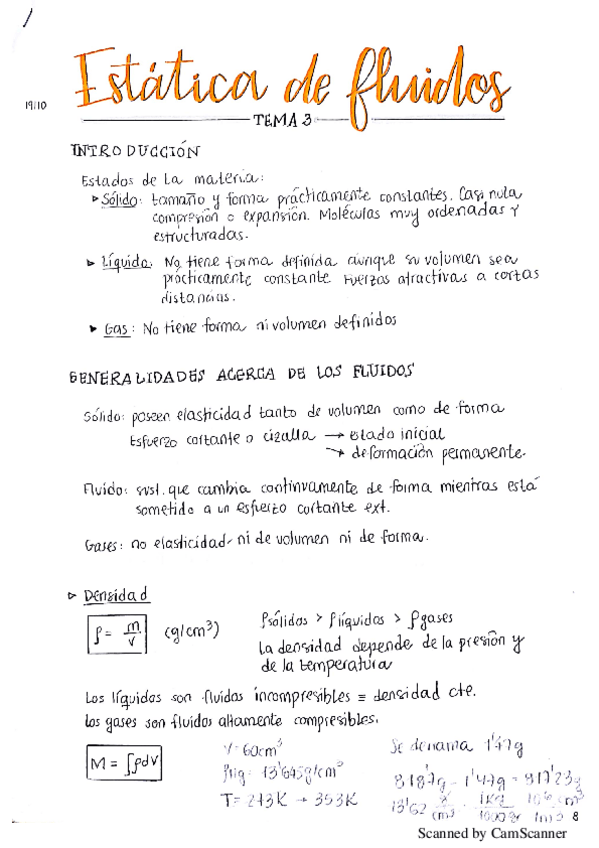 Estática de fluidos
19/10
TEMA 3
INTRODUCCIÓN
Estados de la materia:
▸ Sólido: tamaño y forma prácticamente constantes. Casi nula
compresión o expansión. Moléculas muy ordenadas y
estructuradas.
▸ Líquido: No tiene forma definida aunque su volumen sea
prácticamente constante. Fuerzas atractivas a cortas
distancias.
▸ Gas: No tiene forma ni volumen definidos
GENERALIDADES ACERCA DE LOS FLUIDOS
Sólido: poseen elasticidad tanto de volumen como de forma
Esfuerzo cortante o cizalla → estado inicial
→ deformación permanente.
Fluido: sust. que cambia continuamente de forma mientras está
sometido a un esfuerzo cortante ext.
Gases: no elasticidad ni de volumen ni de forma.
▸ Densidad
ρ = m/v (g/cm³) ρsólidos > ρlíquidos > ρgases
La densidad depende de la presión y
de la temperatura
Los líquidos son fluidos incompresibles ≡ densidad cte.
Los gases son fluidos altamente compresibles.
M = ∫ρdV
V = 60cm³
ρHg = 13'645g/cm³
T = 273K → 353K
Se derrama 1'47g
818'7g - 1'47g = 817'23g
13'62 g/cm³ · 1Kg/1000g · 10⁶cm³/1m³
8
Scanned by CamScanner